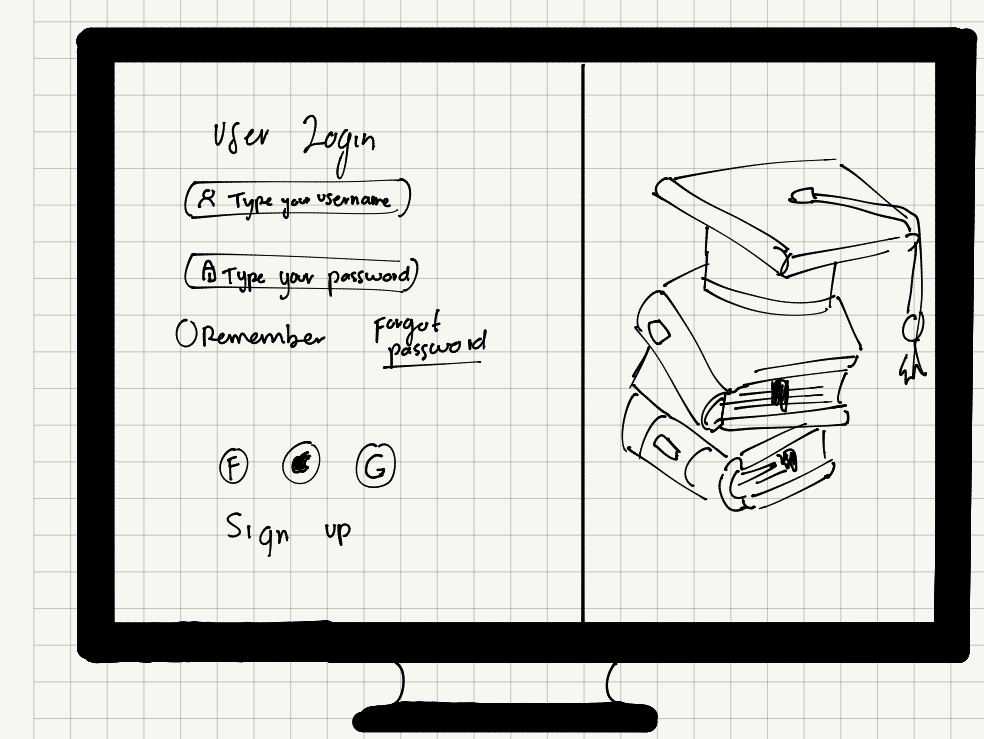 User Login
Type your username
Type your password
Remember
Forgot
password
F
G
Sign up